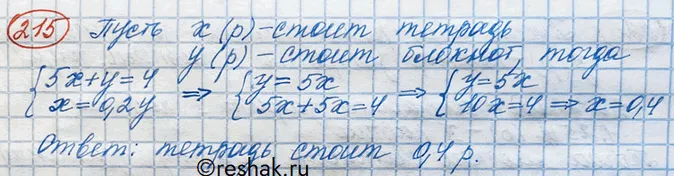 215 Пусть x (р) - стоит тетрадь
y (р) - стоит блокнот, тогда
{5x+y=4 ⇒ {y=5x ⇒ {y=5x
{x=0,2y {5x+5x=4 {10x=4 ⇒ x=0,4
Ответ: тетрадь стоит 0,4 р.
reshak.ru